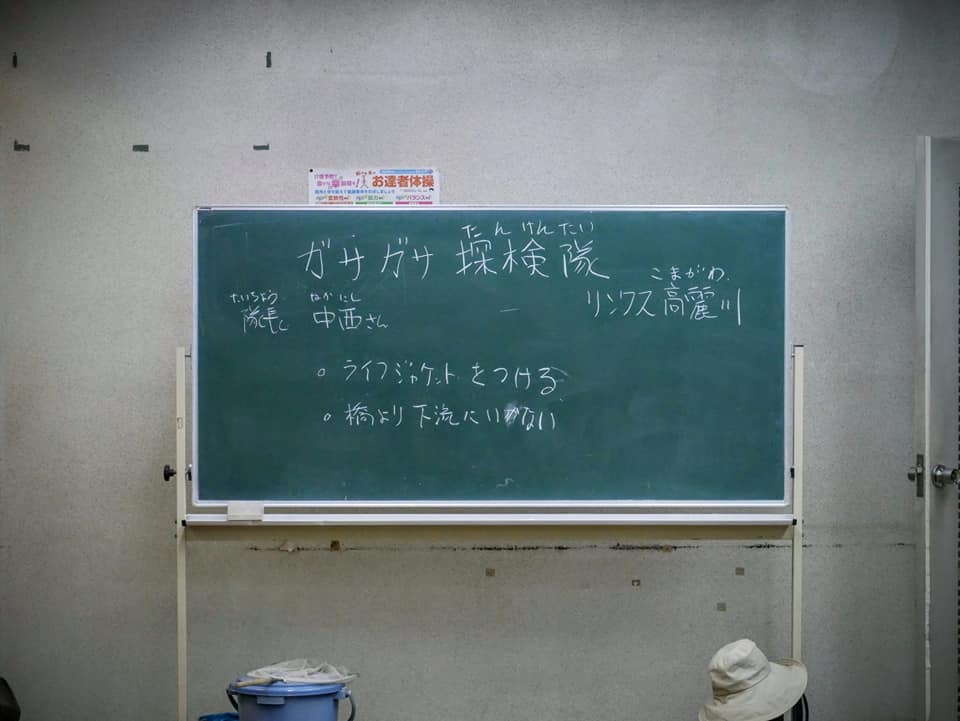 お達者体操
たんけんたい
ガサガサ探検隊
こまがわ
リンクス高麗川
たいちょう なかにし
隊長 中西さん
○ ライフジャケットをつける
○ 橋より下流にいかない